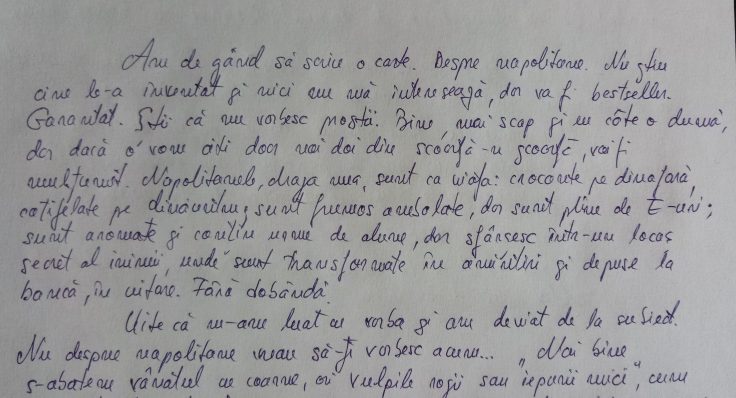 Am de gând să scriu o carte. Despre napolitane. Nu știu
cine le-a inventat și nici nu mă interesează, dar va fi bestseller.
Garantat. Știi că nu vorbesc prostii. Bine, mai scap și eu câte o dumă,
dar dacă o vom citi doar noi doi din scoarță-n scoarță, voi fi
mulțumit. Napolitanele, draga mea, sunt ca viața: crocante pe dinafară,
catifelate pe dinăuntru, sunt frumos ambalate, dar sunt pline de E-uri;
sunt aromate și conțin urme de alune, dar sfârșesc într-un locaș
secret al inimii, unde sunt transformate în amintiri și depuse la
bancă, în uitare. Fără dobândă.
Uite că m-am luat cu vorba și am deviat de la subiect.
Nu despre napolitane vreau să-ți vorbesc acum... „Mai bine
s-abatem vânatul cu coarne, ori vulpile roșii sau iepurii mici", cum